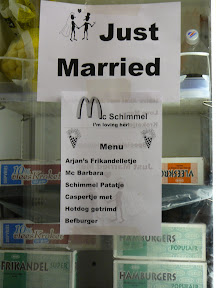 Just
Married
Mc Schimmel
I'm loving her!
Menu
Arjan's Frikandelletje
Mc Barbara
Schimmel Patatje
Caspertje met
Hotdog getrimd
Befburger
VLEESKROKET
FRIKANDEL
HAMBURGERS
POPULAIR
HAMBURGERS
POPULAIR